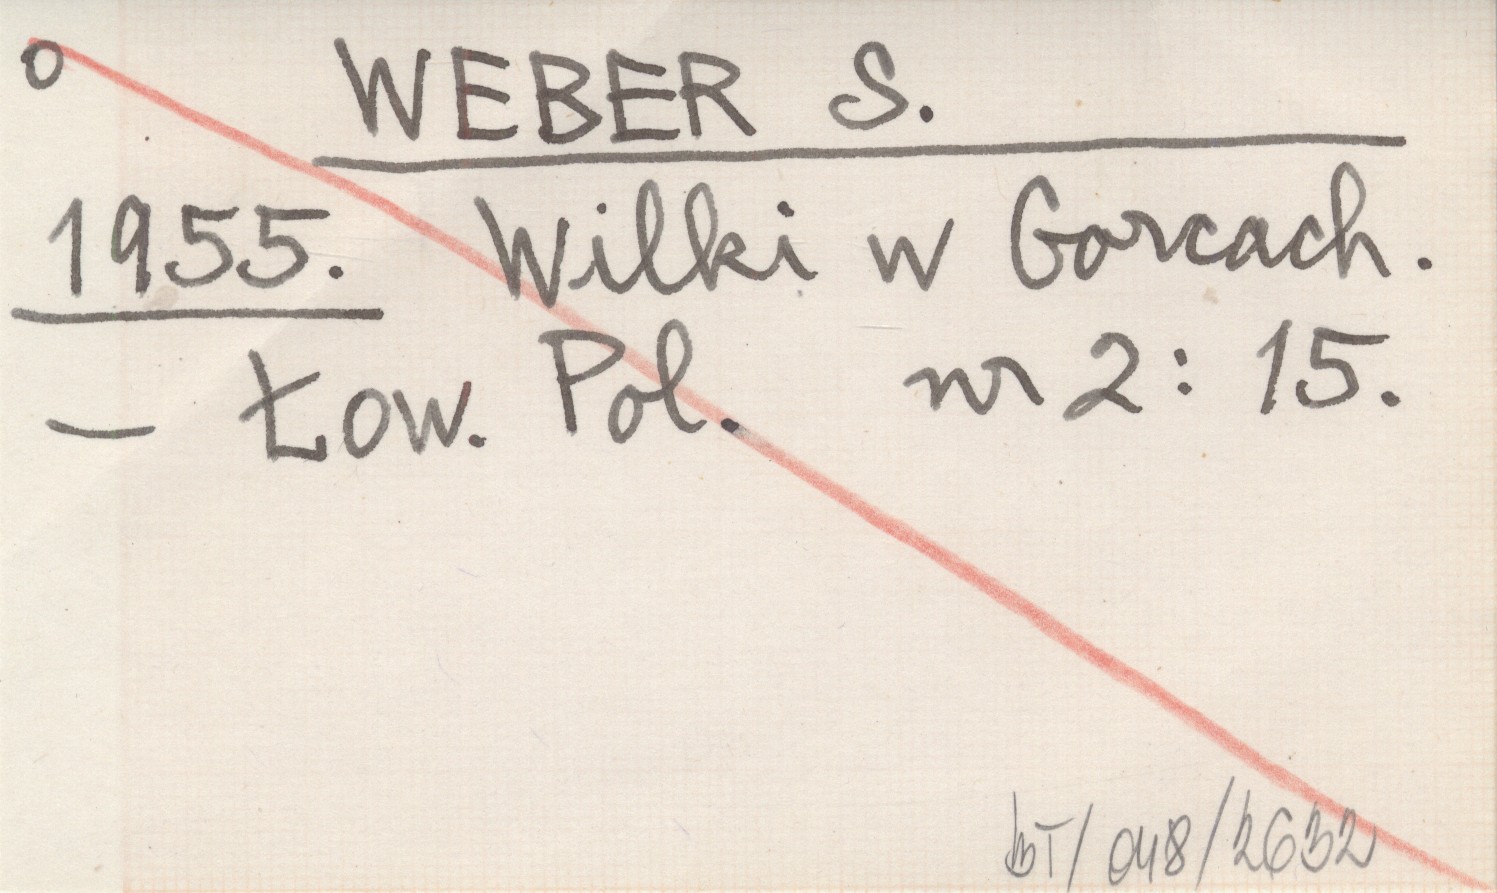 o WEBER S.
1955. Wilki w Gorcach.
— Łow. Pol. nr 2: 15.
bT/048/2632